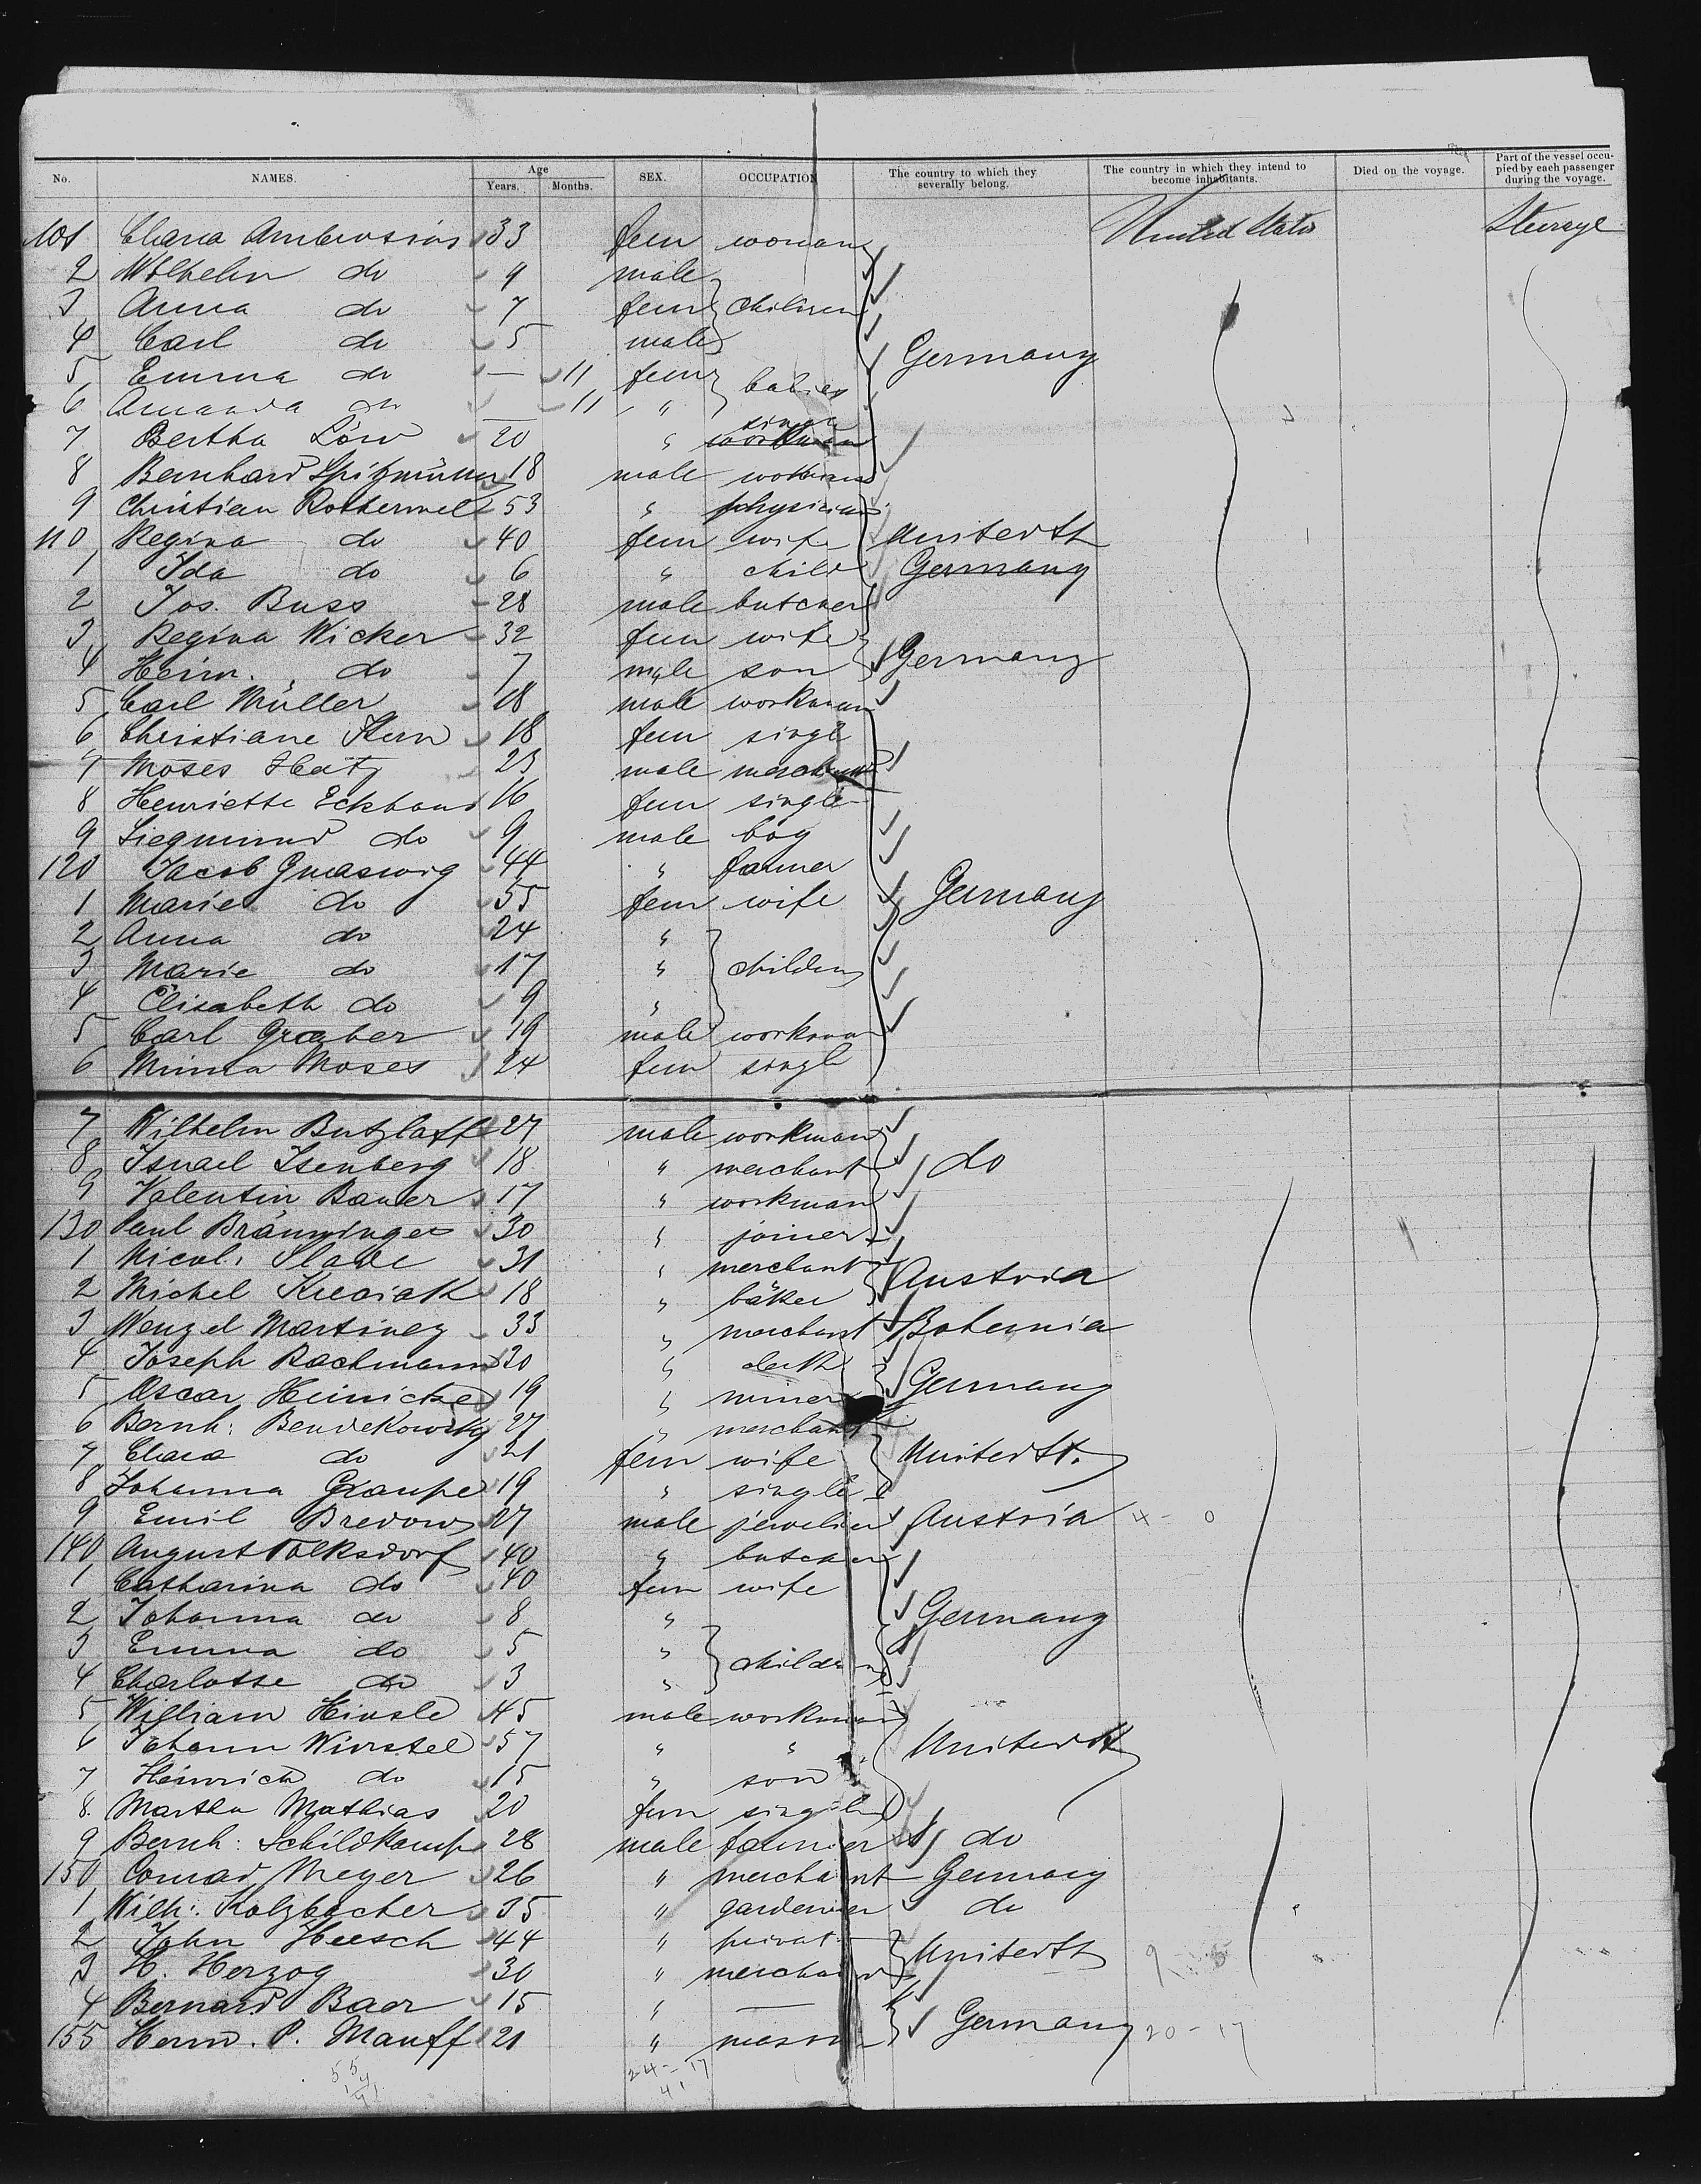 No. NAMES. Age Years. Months. SEX. OCCUPATION The country to which they severally belong. The country in which they intend to become inhabitants. Died on the voyage. Part of the vessel occupied by each passenger during the voyage.
101 Clara Ambrosius 33 fem woman United States Steerage
2 Wilhelm do 9 male
3 Anna do 7 fem children
4 Carl do 5 male
5 Emma do — 11 fem babies Germany
6 Amanda do 11 "
7 Bertha Löw 20 " single workman
8 Bernhard Spitzmüller 18 male workman
9 Christian Rothermel 53 " physician
110 Regina do 40 fem wife United St
1 Ida do 6 " child Germany
2 Jos. Buss 28 male butcher
3 Regina Wicker 32 fem wife
4 Heinr. do 7 male son Germany
5 Carl Müller 18 male workman
6 Christiane Stern 18 fem single
7 Moses Hatz 23 male merchant
8 Henriette Eckhaus 16 fem single
9 Siegmund do 9 male boy
120 Jacob 44 " farmer
1 Marie do 55 fem wife Germany
2 Anna do 24 "
3 Marie do 17 " children
4 Elisabeth do 9 "
5 Carl Graber 19 male workman
6 Minna Moses 24 fem single
7 Wilhelm Butzlaff 27 male workman
8 Israel Isenberg 18 " merchant do
9 Valentin Bauer 17 " workman
130 Paul Bräuninger 30 " joiner
1 Nicol. 31 " merchant
2 Michel 18 " bäker Austria
3 Wenzel Martinez 33 " merchant Bohemia
4 Joseph Bachmann 30 " clerk
5 Oscar Heinicke 19 " miner Germany
6 Bernh: Bendekowsky 27 " merchant
7 Clara do 21 fem wife United St.
8 Johanna Graupe 19 " single
9 Emil Bredow 27 male jewelier Austria 4 - 0
140 August Volksdorf 40 " butcher
1 Catharina do 40 fem wife
2 Johanna do 8 " Germany
3 Emma do 5 " children
4 Charlotte do 3 "
5 William Hinsle 45 male workman
6 Johann Wurstel 57 " " United St
7 Heinrich do 15 " son
8. Martha Mathias 20 fem single
9 Bernh: Schildkamp 28 male farmer do
150 Conrad Meyer 26 " merchant Germany
1 Wilh: Kolzbacher 35 " gardener do
2 John Heesch 44 " privat
3 H. Herzog 30 " merchant United St
4 Bernard Baer 15 " —
155 Herm. P. Mauff 21 " mason Germany 20 - 17
24 - 17
41